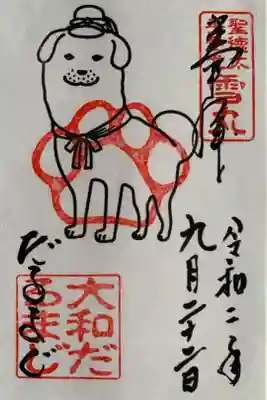 聖徳太
雪丸
令和二年
九月二十二日
だるまじ
大和だ
るまじ